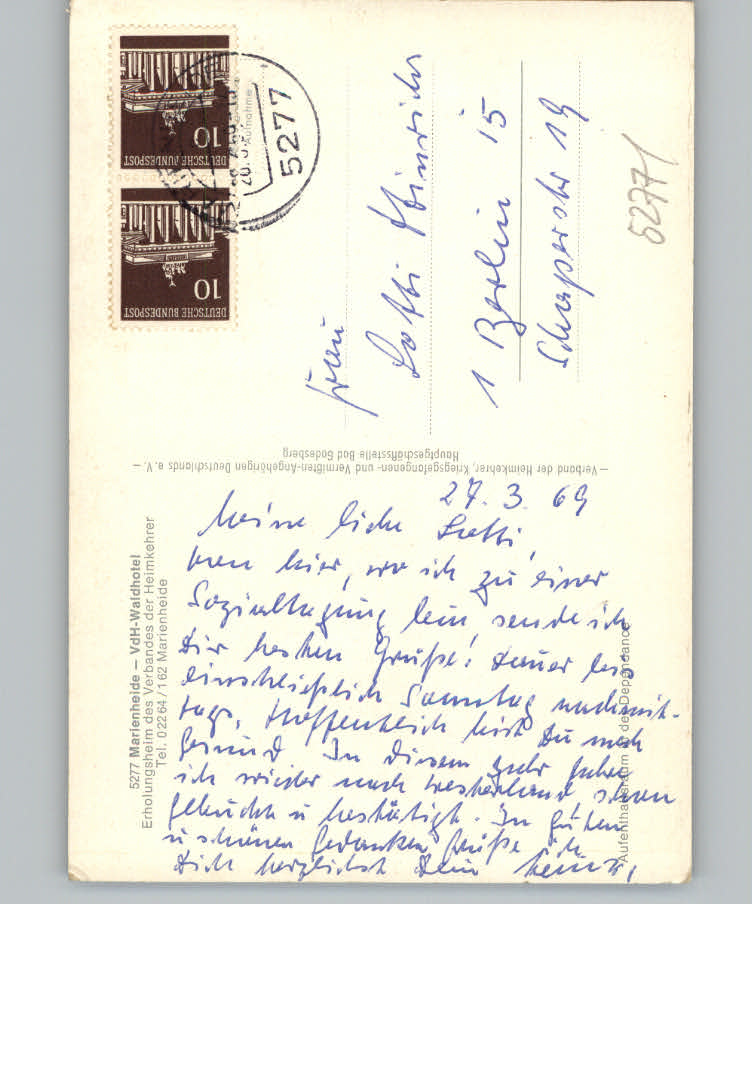 5277 Marienheide — VdH-Waldhotel
Erholungsheim des Verbandes der Heimkehrer
Tel. 0 22 64 / 1 62 Marienheide
27. 3. 69
Meine liebe Lotti,
von hier, wo ich zu einer
Sozialtagung bin, sende ich
Dir besten Grüße! Dauer bis
einschließlich Samstag nachmit-
tags. Hoffentlich bist Du noch
gesund. In diesem Jahr fahre
ich wieder nach Westerland, schon
gebucht u bestätigt. In guten
u schönen Gedanken grüße ich
Dich herzlichst Dein Heinz,
Aufenthaltsraum in der Dependance
— Verband der Heimkehrer, Kriegsgefangenen- und Vermißten-Angehörigen Deutschlands e. V. —
Hauptgeschäftsstelle Bad Godesberg
DEUTSCHE BUNDESPOST
10
DEUTSCHE BUNDESPOST
10
5277
Aufnahme
Frau
Lotti Hinrichs
1 Berlin 15
Schaperstr 19
5277/